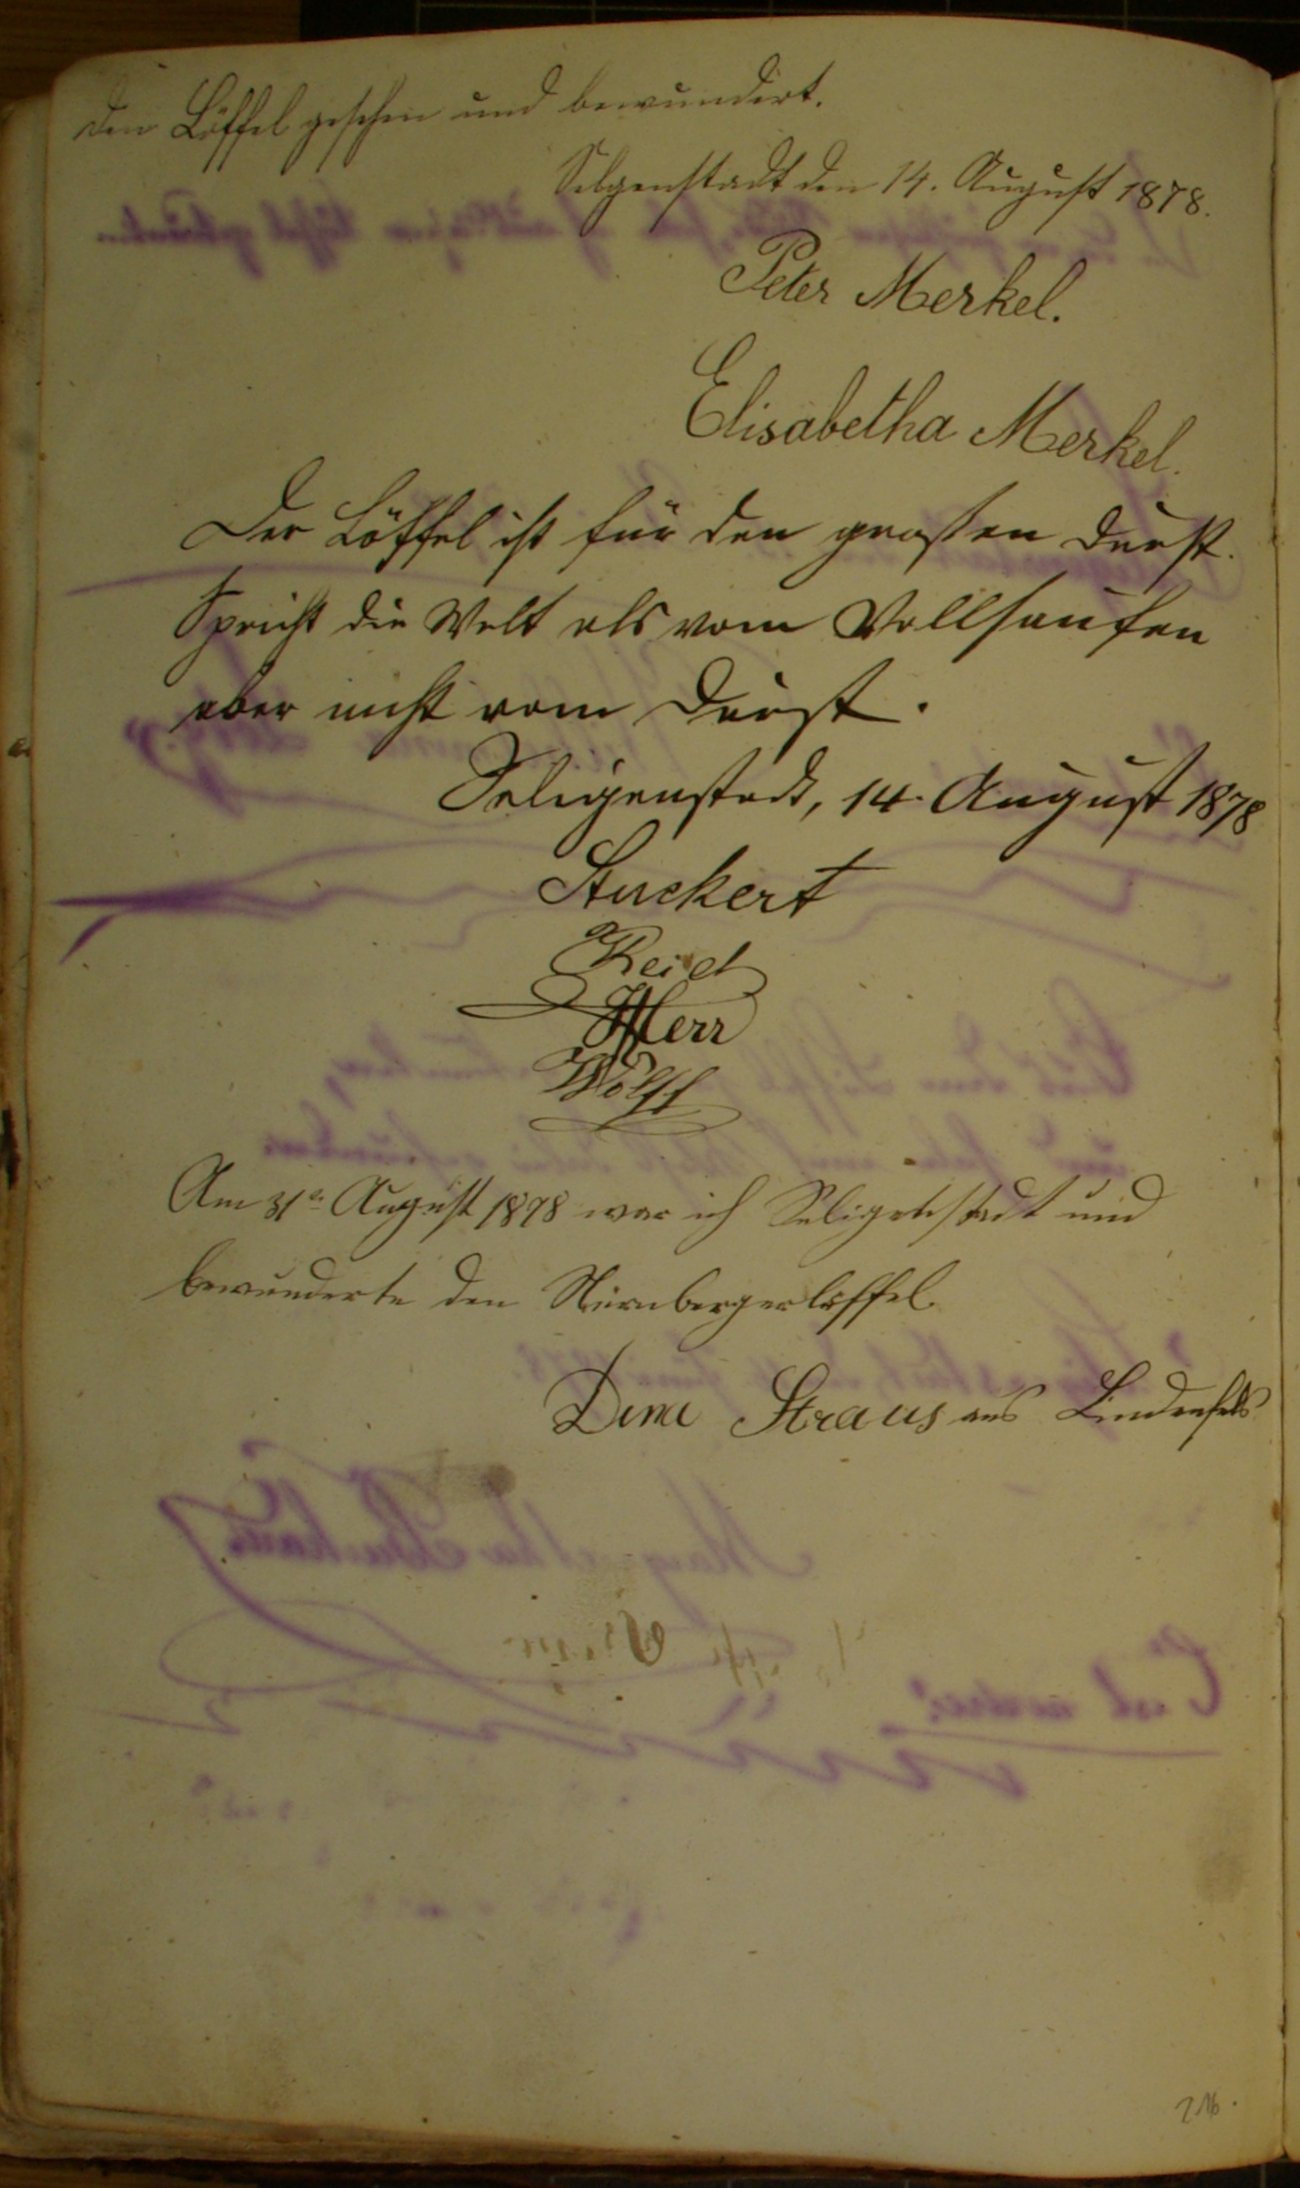 Den Löffel gesehen und bewundert.
Selgenstadt den 14. August 1878.
Peter Merkel.
Elisabetha Merkel.
Der Löffel ist für den großen Durst.
Spricht die Welt als vom Vollsaufen
aber nicht vom Durst.
Seligenstadt, 14. August 1878
Stuckert
Reich
Herr
Wolff
Am 31. August 1878 war ich Seligenstadt und
bewunderte den Nürnbergerlöffel.
Straus aus Lindenfels
216.